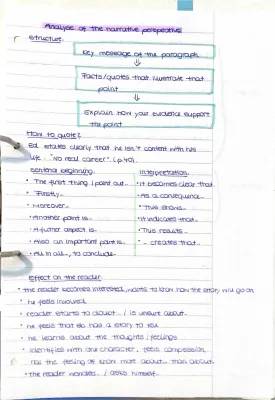 Analyse of the narrative perspective
Structure:
Key message of the paragraph
⇓
Facts/quotes that illustrate that
point
⇓
Explain how your evidence support
the point
How to quote?
Ed states clearly that he isn't content with his
life. "No real career" (p.
Sentence beginning:
• The first thing I point out...
• Firstly...
• Moreover...
• Another point is...
• A further aspect is...
• Also an important point is...
• All in all..., to conclude...
Interpretation:
• It becomes clear that
• As a consequence...
• This shows...
• It indicates that...
• This results...
• ... creates that...
Effect on the reader:
• the reader becomes interested, wants to know how the story will go on
• he feels involved
• reader starts to doubt... / is unsure about...
• he feels that do has a story to tell
• he learns about the thoughts / feelings
• identifies with one character, feels compassion,
has the feeling of know more about... than about...
• the reader wonders... / asks himself...